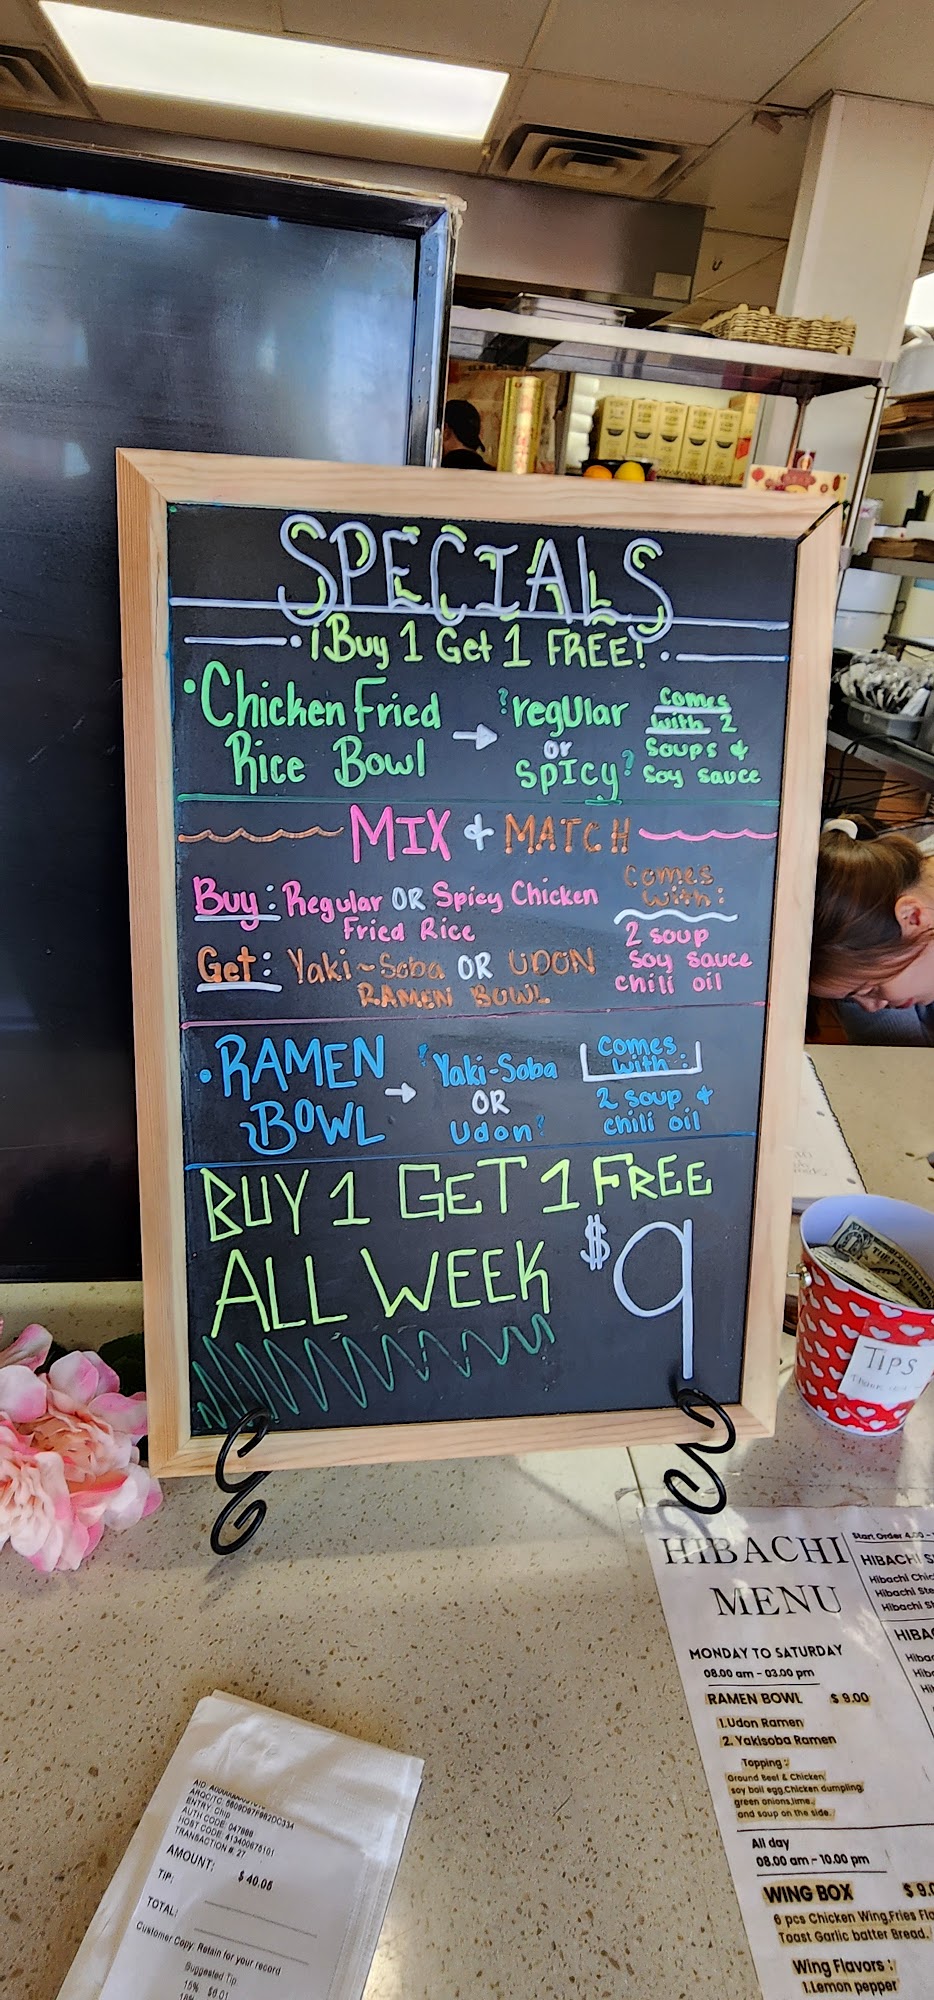 SPECIALS
¡Buy 1 Get 1 FREE!
• Chicken Fried Rice Bowl → ?regular or spicy? comes with 2 soups & soy sauce
MIX & MATCH
Buy: Regular OR Spicy Chicken Fried Rice
Get: Yaki~Soba OR UDON RAMEN BOWL
Comes with:
2 soup
soy sauce
chili oil
• RAMEN BOWL → ?Yaki-Soba OR Udon?
comes with:
2 soup &
chili oil
BUY 1 GET 1 FREE
ALL WEEK $9
TIPS
HIBACHI
MENU
MONDAY TO SATURDAY
08.00 am - 03.00 pm
RAMEN BOWL $ 9.00
1.Udon Ramen
2. Yakisoba Ramen
Topping :
Ground Beef & Chicken
soy boil egg,Chicken dumpling,
green onions,lime.
and soup on the side.
All day
08.00 am - 10.00 pm
WING BOX $ 9.0
6 pcs Chicken Wing,Fries
Toast Garlic batter Bread.
Wing Flavors :
1.Lemon pepper
Start Order 4.00 -
HIBACHI S
Hibachi Chic
Hibachi Ste
Hibachi St
HIBAC
Hibac
Hibac
ENTRY: Chip
AUTH CODE: 047888
HOST CODE: 413400675101
TRANSACTION #: 27
AMOUNT: $ 40.05
TIP:
TOTAL:
Customer Copy: Retain for your record
Suggested Tip
15% $6.01